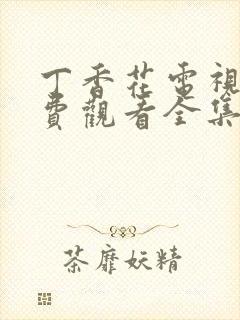 丁香花電視
費觀看全集
荼靡妖精